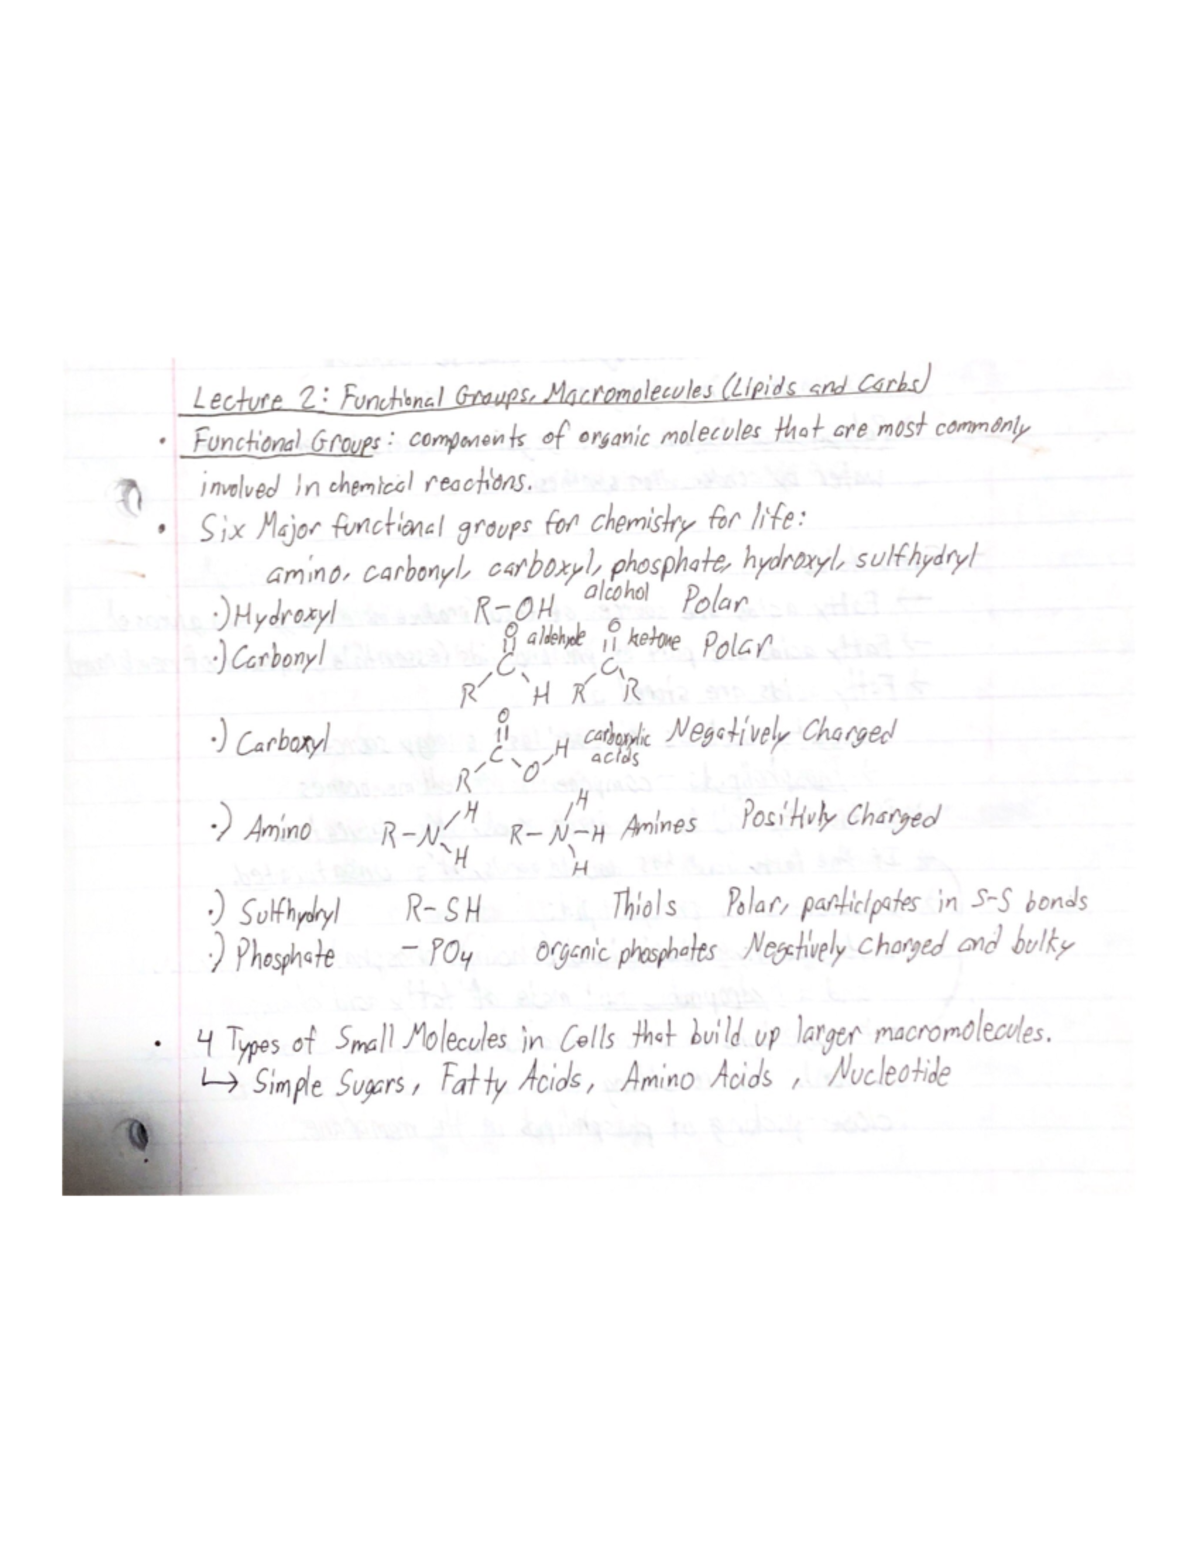 Lecture 2: Functional Groups, Macromolecules (Lipids and Carbs)
• Functional Groups: components of organic molecules that are most commonly
involved in chemical reactions.
• Six Major functional groups for chemistry for life:
amino, carbonyl, carboxyl, phosphate, hydroxyl, sulfhydryl
·) Hydroxyl R-OH alcohol Polar
·) Carbonyl O aldehyde O ketone Polar
C C
R H R R
O
·) Carboxyl C O H carboxylic acids Negatively Charged
R
·) Amino R-N H H R-N-H H H Amines Positivly Charged
·) Sulfhydryl R-SH Thiols Polar, participates in S-S bonds
·) Phosphate -PO4 organic phosphates Negatively Charged and bulky
• 4 Types of Small Molecules in Cells that build up larger macromolecules.
↳ Simple Sugars, Fatty Acids, Amino Acids, Nucleotide